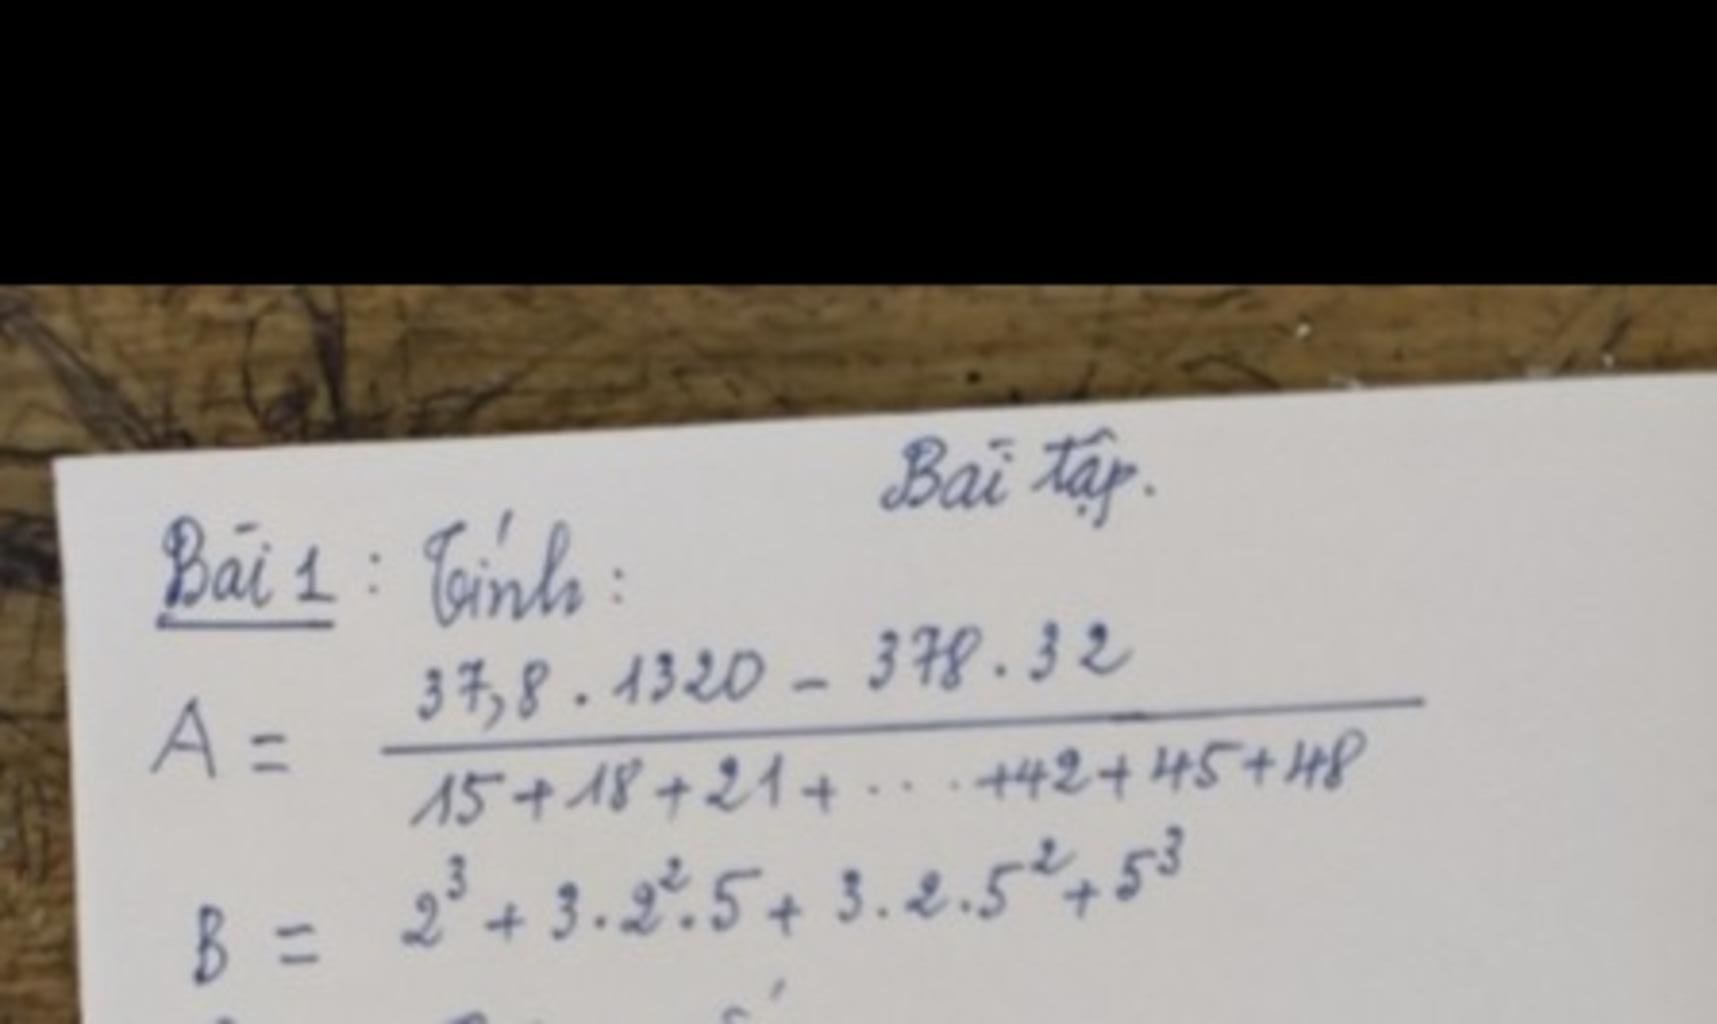 Bài tập.
Bài 1 : Tính :
A = \frac{37,8 . 1320 - 378 . 32}{15 + 18 + 21 + .... + 42 + 45 + 48}
B = 2^3 + 3 . 2^2 . 5 + 3 . 2 . 5^2 + 5^3